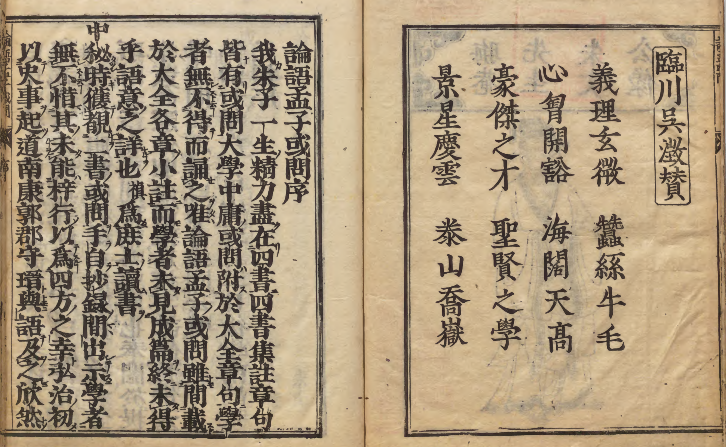 臨川吳澂賛
義理玄微　蠶絲牛毛
心胷開豁　海闊天高
豪傑之才　聖賢之學
景星慶雲　泰山喬嶽
論語孟子或問序
我朱子一生精力盡在四書四書集註章句
皆有或問大學中庸或問附於大全章句學
者無不得而誦之唯論語孟子或問雖間載
於大全各章小註而學者未見成篇終未得
乎語意之詳也　爲庶士讀書
中秘時獲覩二書或問手自抄録間出示學者
無不惜其未能梓行以爲四方之幸私治初
以史事起道南康郭郡守瑨與語及之欣然